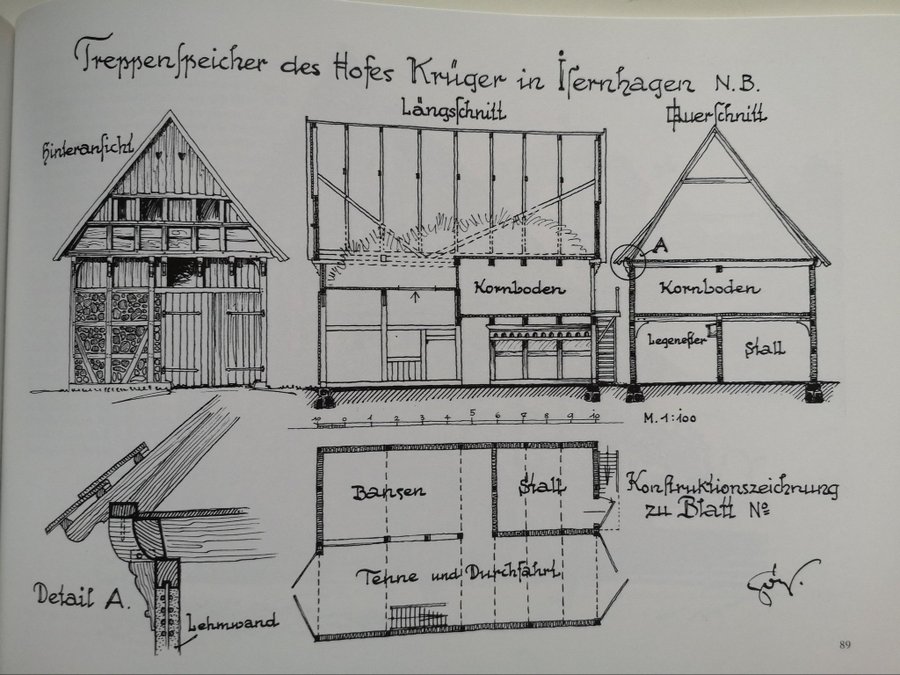 Treppenſpeicher des Hofes Krüger in Iſernhagen N.B.
Hinteranſicht
Längsſchnitt
Querſchnitt
A
Kornboden
Kornboden
Legeneſter
Stall
10 0 1 2 3 4 5 6 7 8 9 10
M. 1:100
Banſen
Stall
Konſtruktionszeichnung
zu Blatt No
Tenne und Durchfahrt
Detail A.
Lehmwand
89